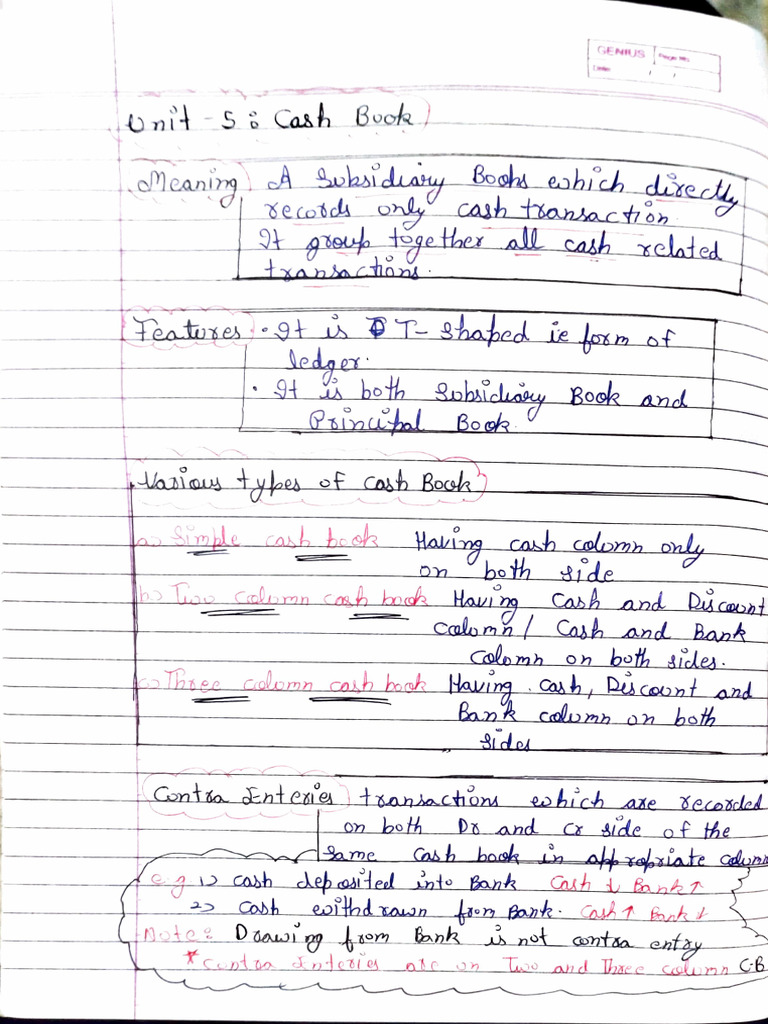 GENIUS
Page No.
Date / /
Unit - 5 : Cash Book
Meaning A Subsidiary Books which directly
records only cash transaction.
It group together all cash related
transactions.
Features • It is T- Shaped ie form of
ledger.
• It is both Subsidiary Book and
Principal Book.
Various types of cash Book
a) Simple cash book Having cash column only
on both side
b) Two column cash book Having Cash and Discount
column / Cash and Bank
Column on both sides.
c) Three column cash book Having Cash, Discount and
Bank column on both
sides
Contra Enteries transactions which are recorded
on both Dr and Cr side of the
same Cash book in appropriate column
e.g 1) cash deposited into Bank Cash ↓ Bank ↑
2) Cash withdrawn from Bank. Cash ↑ Bank ↓
Note: Drawing from Bank is not contra entry
* Contra Enteries are on Two and Three column C.B